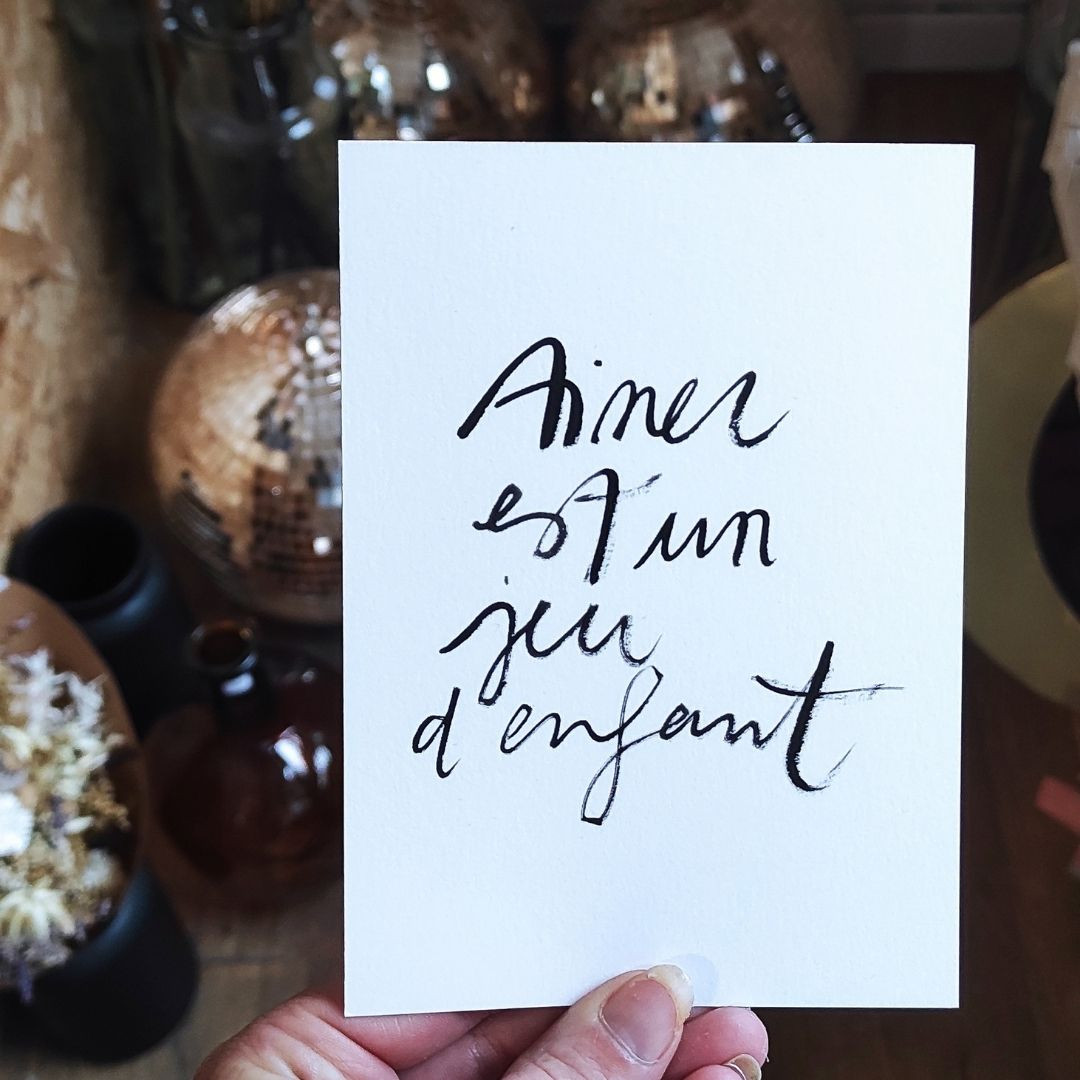 Aimer
est un
jeu
d'enfant